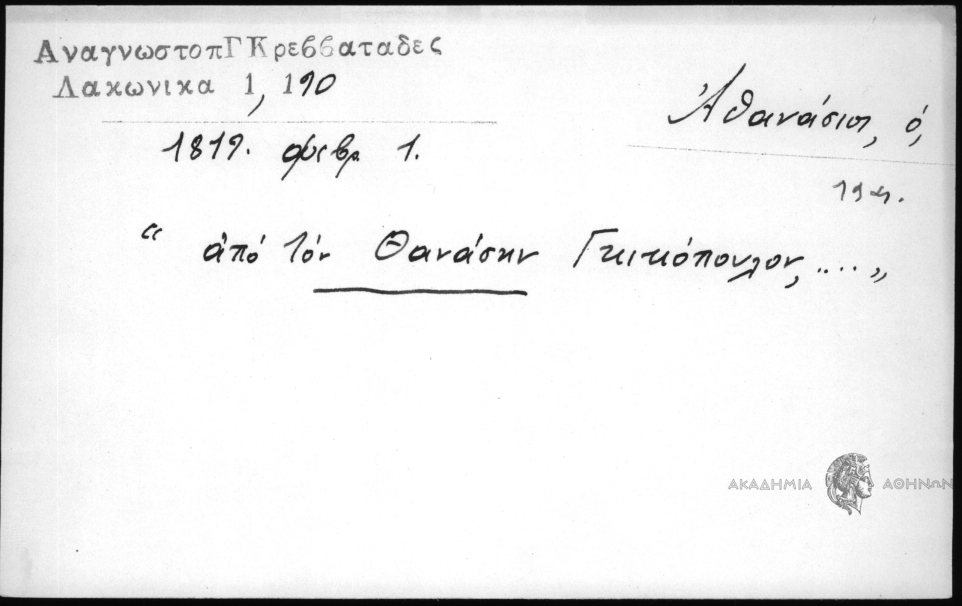 ΑναγνωστοπΓΚρεββαταδες
Λακωνικα 1, 190
Ἀθανάσιος, ὁ,
1819. φεβρ. 1.
19η.
“ ἀπό τόν Θανάσην Γκικόπουλον, .... „
ΑΚΑΔΗΜΙΑ ΑΘΗΝΩΝ